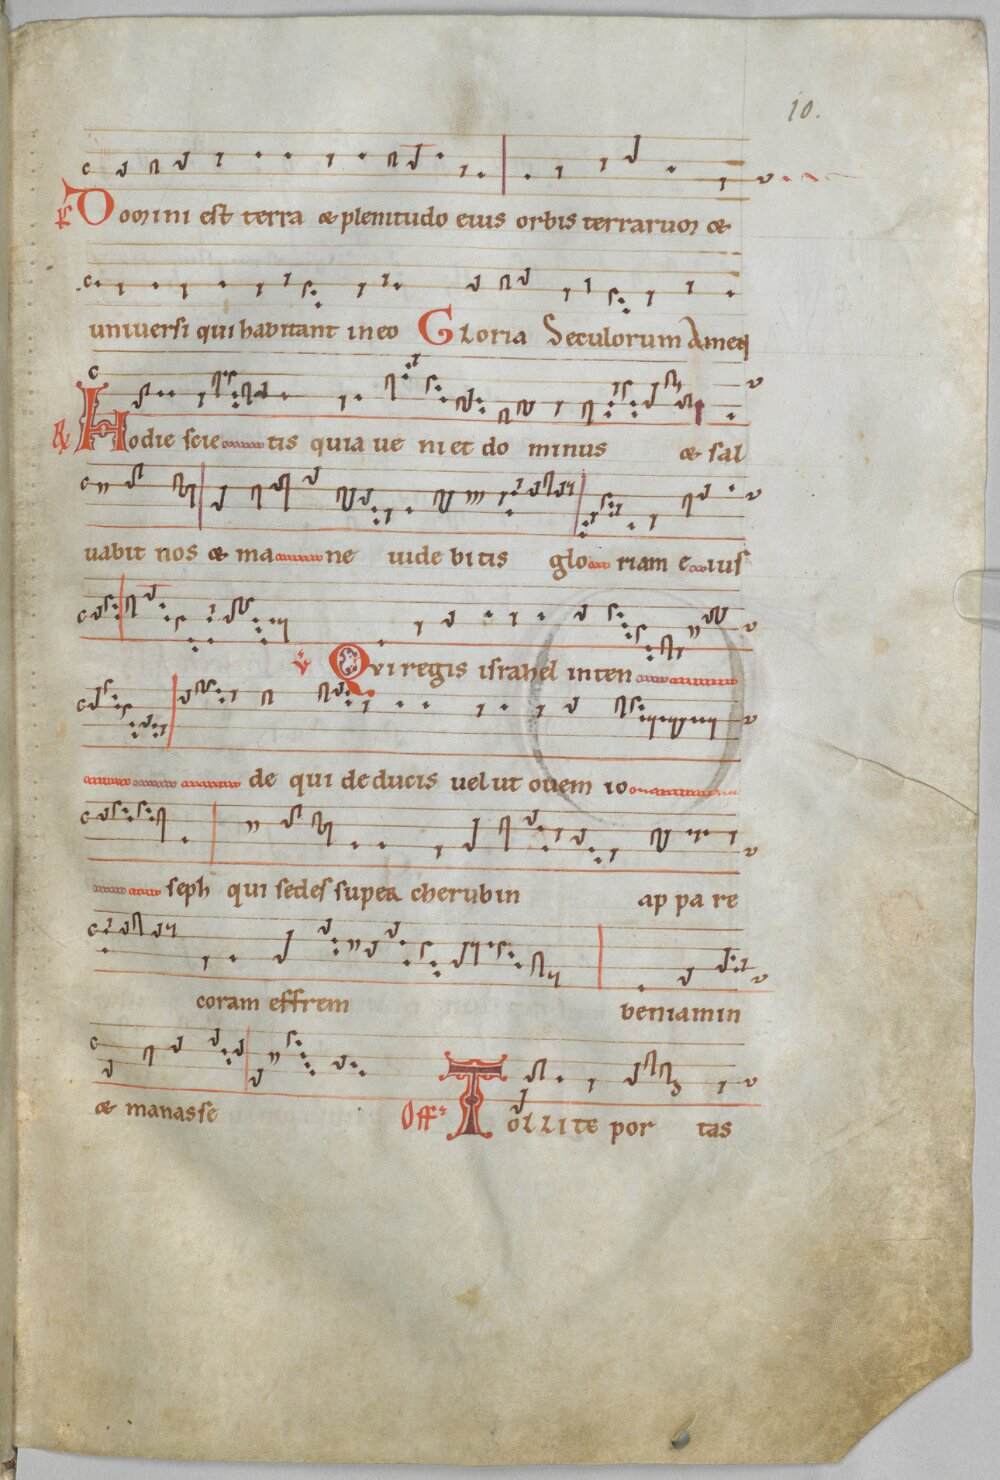 10.
Domini est terra & plenitudo eius orbis terrarum &
universi qui habitant in eo Gloria Seculorum Amen
Hodie scie tis quia ue ni et do minus & sal
uabit nos & ma ne uide bi tis glo riam e ius
v Qvi regis israhel in ten
de qui deducis uel ut ouem io
seph qui sedes super cherubin ap pa re
coram effrem beniamin
& manasse Off T ollite por tas